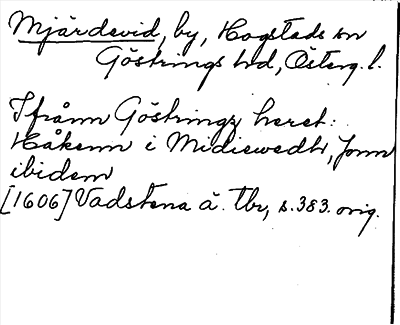 Mjärdevid, by, Hogstads sn
Göstrings hd, Österg. l.
Ifrånn Göstringz heret:
Håkenn i Midiewedh, Jonn
ibidem
[1606] Vadstena ä. tbr, s. 383. orig.